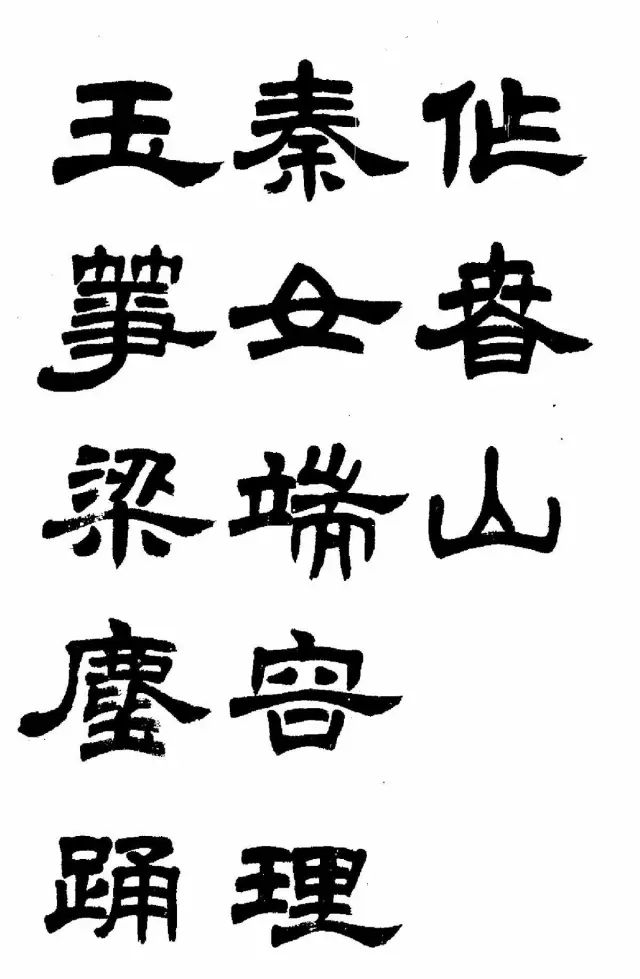 作春山
秦女端容理
玉箏梁塵踊